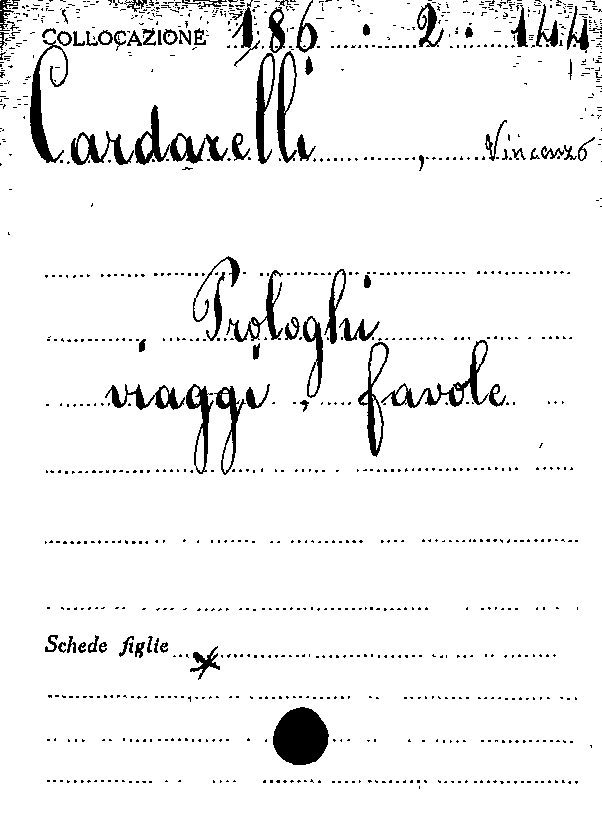 COLLOCAZIONE 186.2.144
Cardarelli, Vincenzo
Prologhi
viaggi, favole
Schede figlie